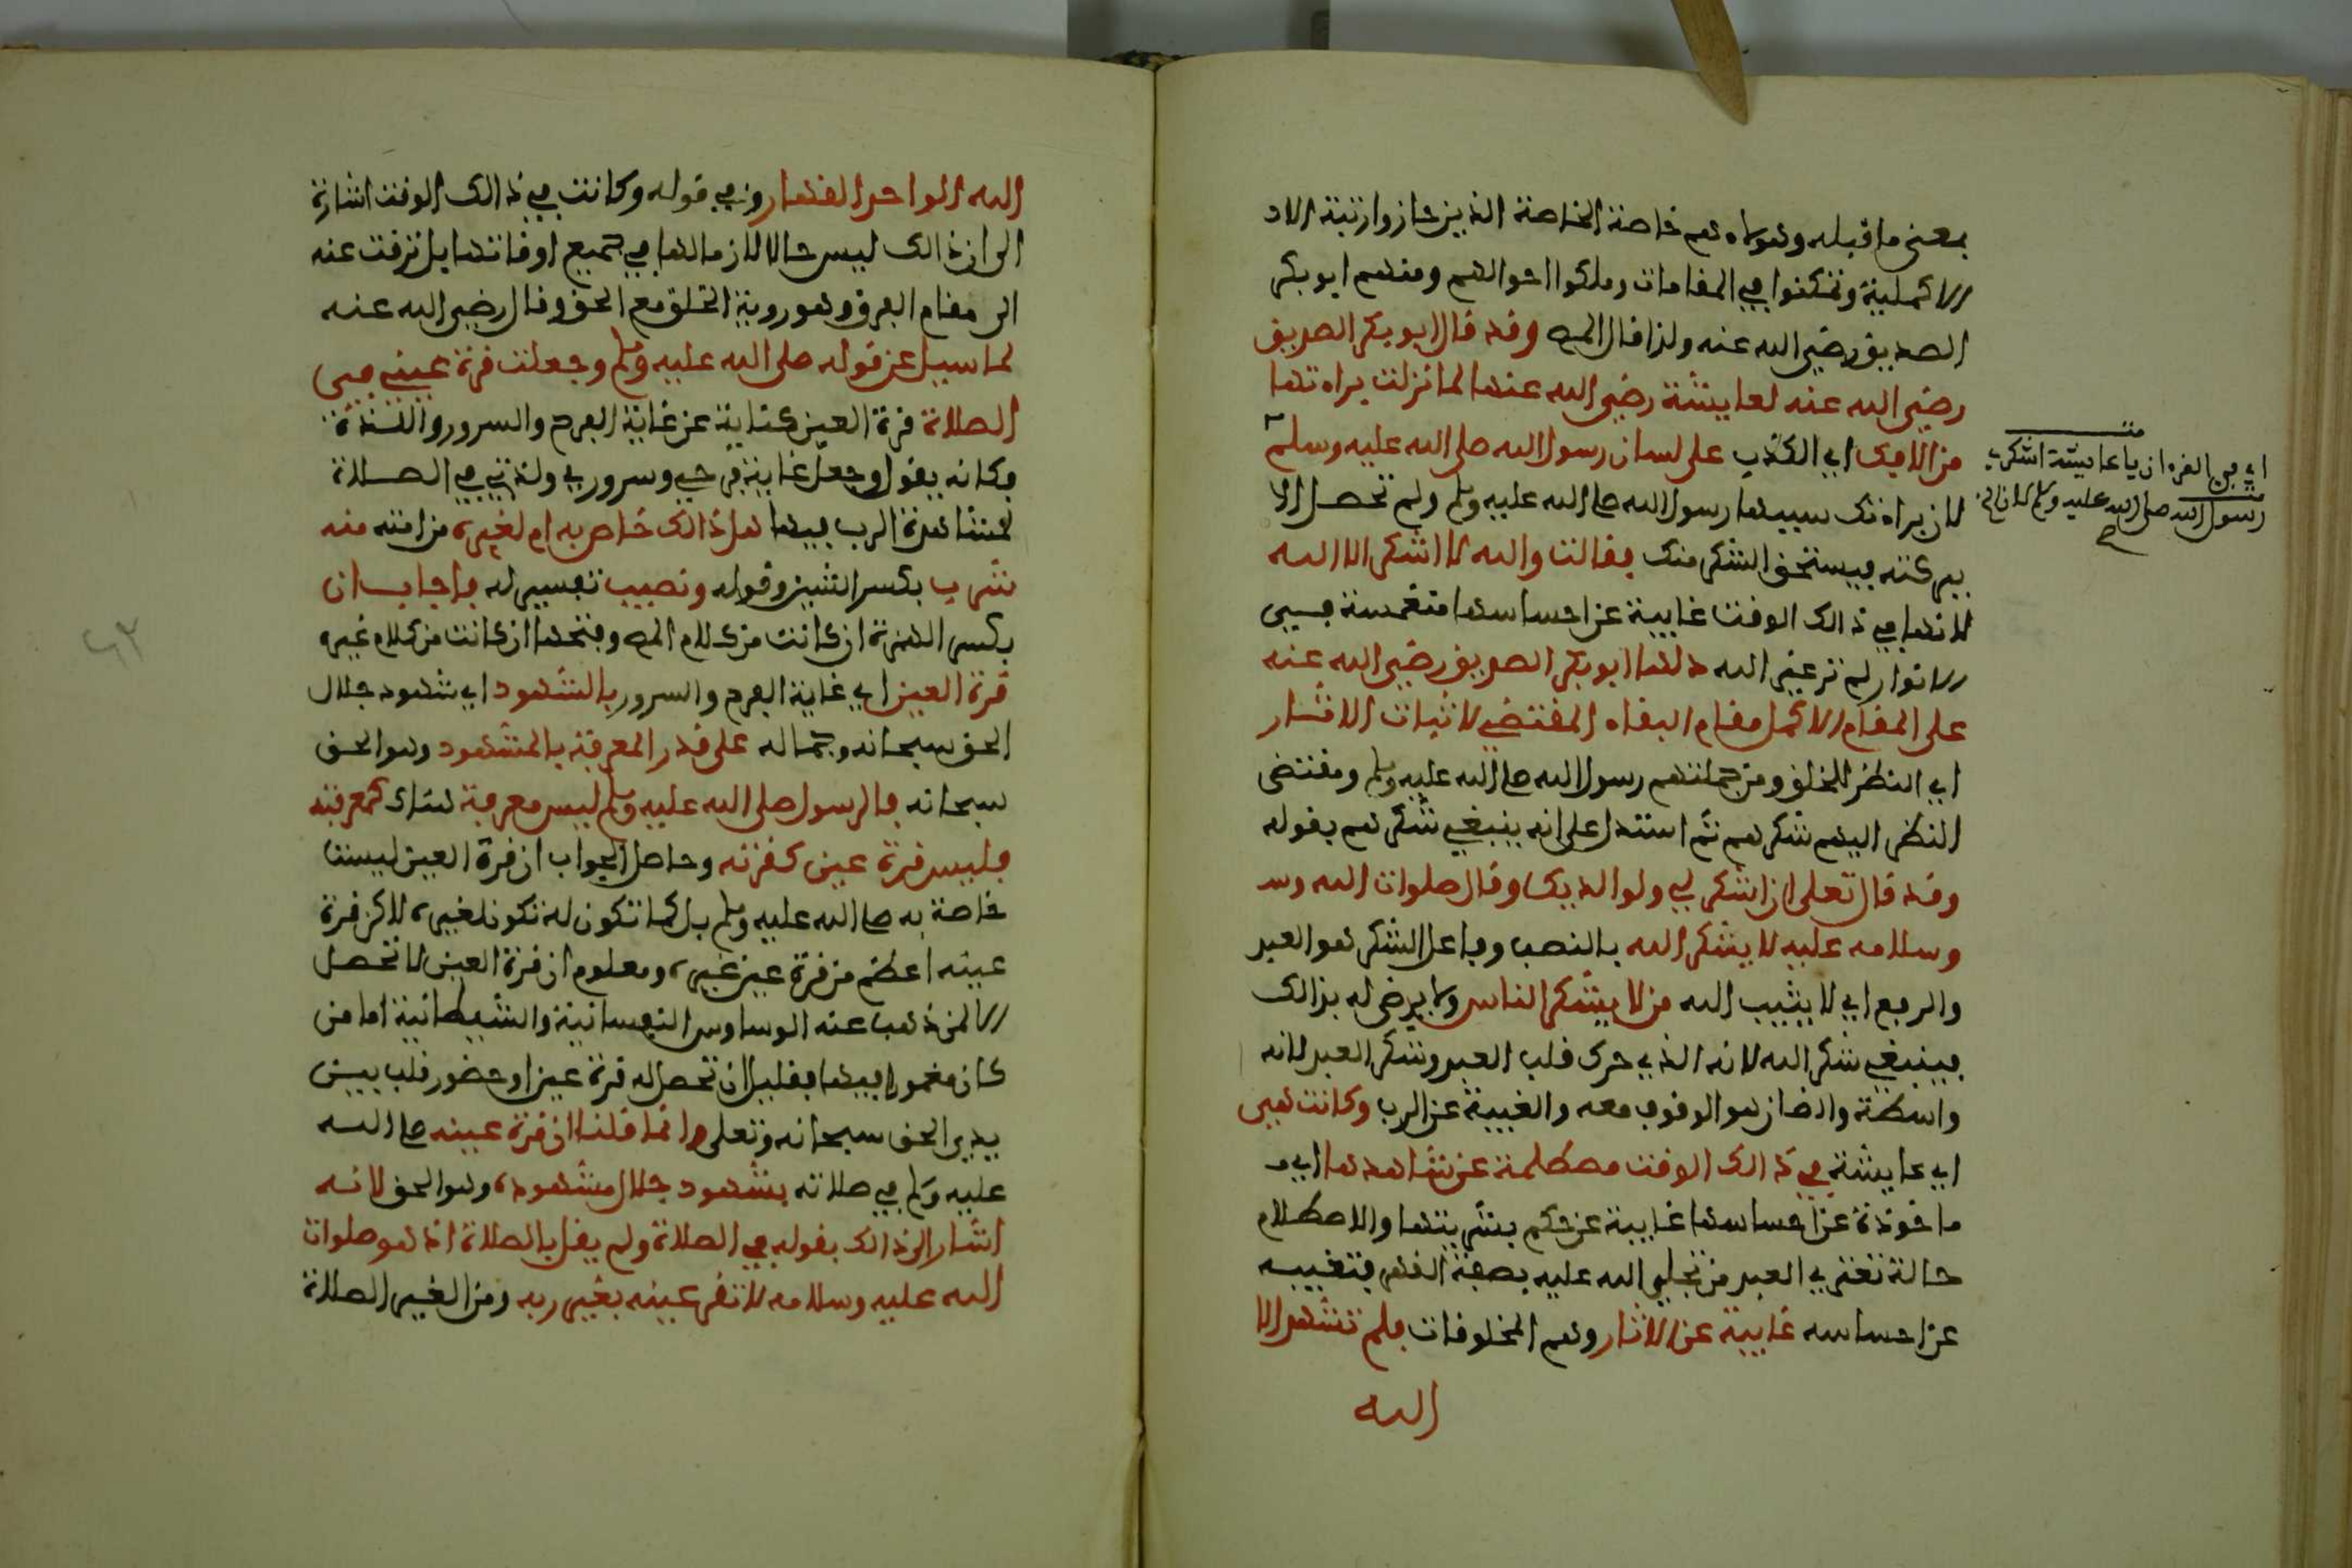 بمعنى ما قبله وهولاء هم خاصة الخاصة الذين حازوا رتبة الا
الاكملية وتمكنوا في المقامات وملكوا احوالهم ومنهم ابو بكر
الصديق رضي الله عنه ولذا قال المص وقد قال ابو بكر الصديق
رضي الله عنه لعايشة رضي الله عنها لما نزلت براءتها
من الافك اي الكذب على لسان رسول الله صلى الله عليه وسلم
اي في القرءان يا عايشة اشكري
رسول الله صلى الله عليه وسلم
لان براءتك سببها رسول الله صلى الله عليه وسلم ولم تحصل الا
ببركته فيستحق الشكر منك فقالت والله لا اشكر الا الله
لانها في ذالك الوقت غايبة عن احساسها منغمسة في
الانوار لم تر غير الله دلها ابو بكر الصديق رضي الله عنه
على المقام الاكمل مقام البقاء المقتضي لاثبات الاثار
اي النظر للخلق ومن جملتهم رسول الله صلى الله عليه وسلم ومقتضى
النظر اليهم شكرهم ثم استدل على انه ينبغي شكرهم بقوله
وقد قال تعلى ان اشكر لي ولوالديك وقال صلوات الله وسـ
وسلامه عليه لا يشكر الله بالنصب وفاعل الشكر هو العبد
والرفع اي لا يثيب الله من لا يشكر الناس ولا يرضى له بذالك
فينبغي شكر الله لانه الذي حرك قلب العبد وشكر العبد لانه
واسطة والضار هو الوقوف معه والغيبة عن الرب وكانت هي
اي عايشة في ذالك الوقت مصطلمة عن شاهدها اي مـ
ماخوذة عن احساسها غايبة عن حكم بشريتها والاصطلام
حالة تعتري العبد من تجلي الله عليه بصفة القهر فتغيبه
عن احساسه غايبة عن الاثار وهم المخلوقات فلم تشهد الا
الله
الله الواحد القهار وفي قوله وكانت في ذالك الوقت اشارة
الى ان ذالك ليس حالا لازما لها في جميع اوقاتها بل ترقت عنه
الى مقام الفرق وهو روية الخلق مع الحق وقال رضي الله عنه
لما سيل عن قوله صلى الله عليه وسلم وجعلت قرة عيني في
الصلاة قرة العين كناية عن غاية الفرح والسرور واللذة
فكانه يقول وجعل غاية فرحي وسروري ولذتي في الصلاة
لمشاهدة الرب فيها هل ذالك خاص به ام لغيره من امته منه
شرب بكسر الشين وقوله ونصيب تفسير له فاجاب ان
بكسر الهمزة ان كانت من كلام المص وفتحها ان كانت من كلام غيره
قرة العين اي غاية الفرح والسرور بالشهود اي شهود جلال
الحق سبحانه وجماله على قدر المعرفة بالمشهود وهو الحق
سبحانه فالرسول صلى الله عليه وسلم ليس معرفة هناك كمعرفته
فليس قرة عين كقرته وحاصل الجواب ان قرة العين ليست
خاصة به صلى الله عليه وسلم بل كما تكون له تكون لغيره لاكن قرة
عينه اعظم من قرة عين غيره ومعلوم ان قرة العين لا تحصل
الا لمن ذهب عنه الوساوس النفسانية والشيطانية اما من
كان مغمورا فيها فقليل ان تحصل له قرة عين او حضور قلب بين
يدي الحق سبحانه وتعلى وانما قلنا ان قرة عينه صلى الله
عليه وسلم في صلاته بشهود جلال مشهوده وهو الحق لانه
اشار الى ذالك بقوله في الصلاة ولم يقل بالصلاة اذ هو صلوات
الله عليه وسلامه لا تقر عينه بغير ربه ومن الغير الصلاة